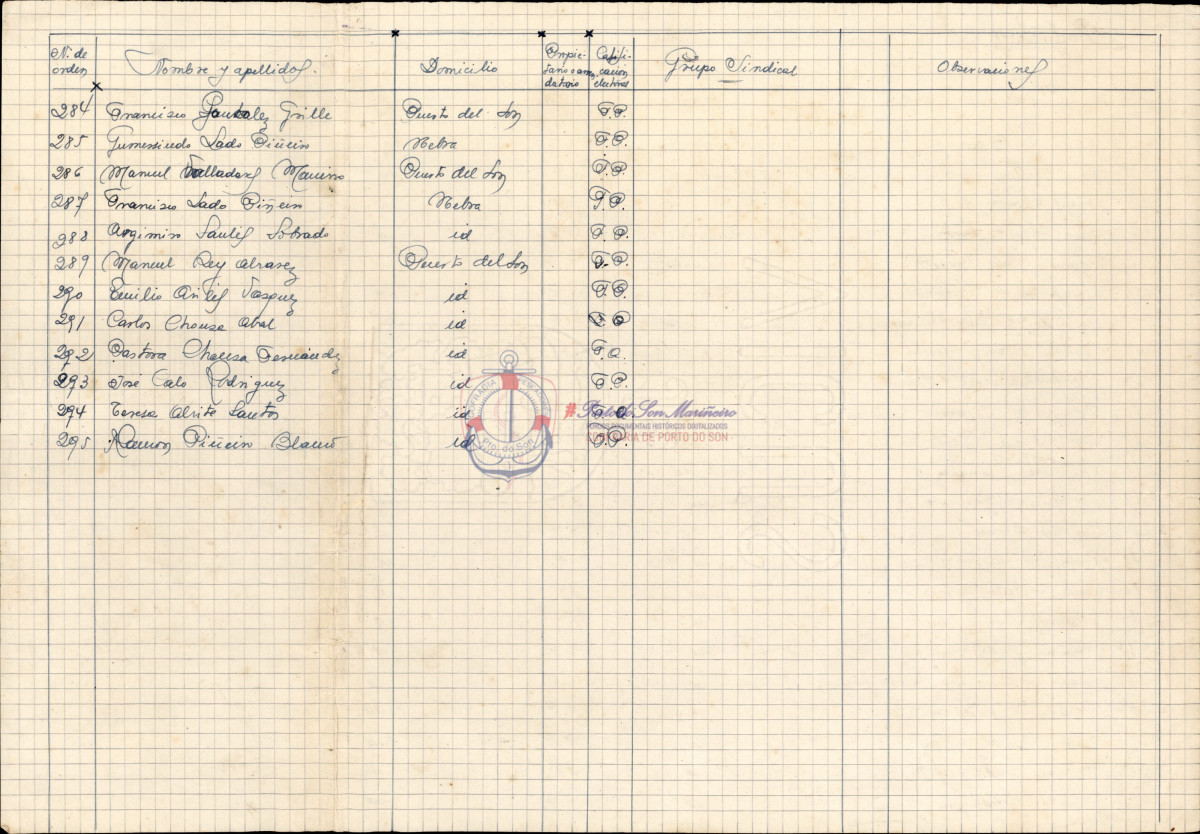 Nº de orden Nombre y apellidos. Domicilio Califi-cación electoral Grupo Sindical Observaciones
284 Francisco Gonzalez Grille Puerto del Son T.P.
285 Gumersindo Lado Piñeiro Nebra T.P.
286 Manuel Valladares Mariño Puerto del Son T.P.
287 Francisco Lado Piñeiro Nebra T.P.
288 Argimiro Saulés Sobrado id T.P.
289 Manuel Rey Alvarez Puerto del Son T.P.
290 Emilio Vasquez id T.P.
291 Carlos Chouza Abal id T.P.
292 Pastora Chouza Fernández id T.
293 José Calo Rodriguez id T.P.
294 Teresa Santos id
295 Ramon Piñeiro Blanco id T.P.
COFRADÍA PESCADORES
Pto. do Son
#Porto do Son Mariñeiro
FONDOS DOCUMENTAIS HISTÓRICOS DIXITALIZADOS
CONFRARÍA DE PORTO DO SON